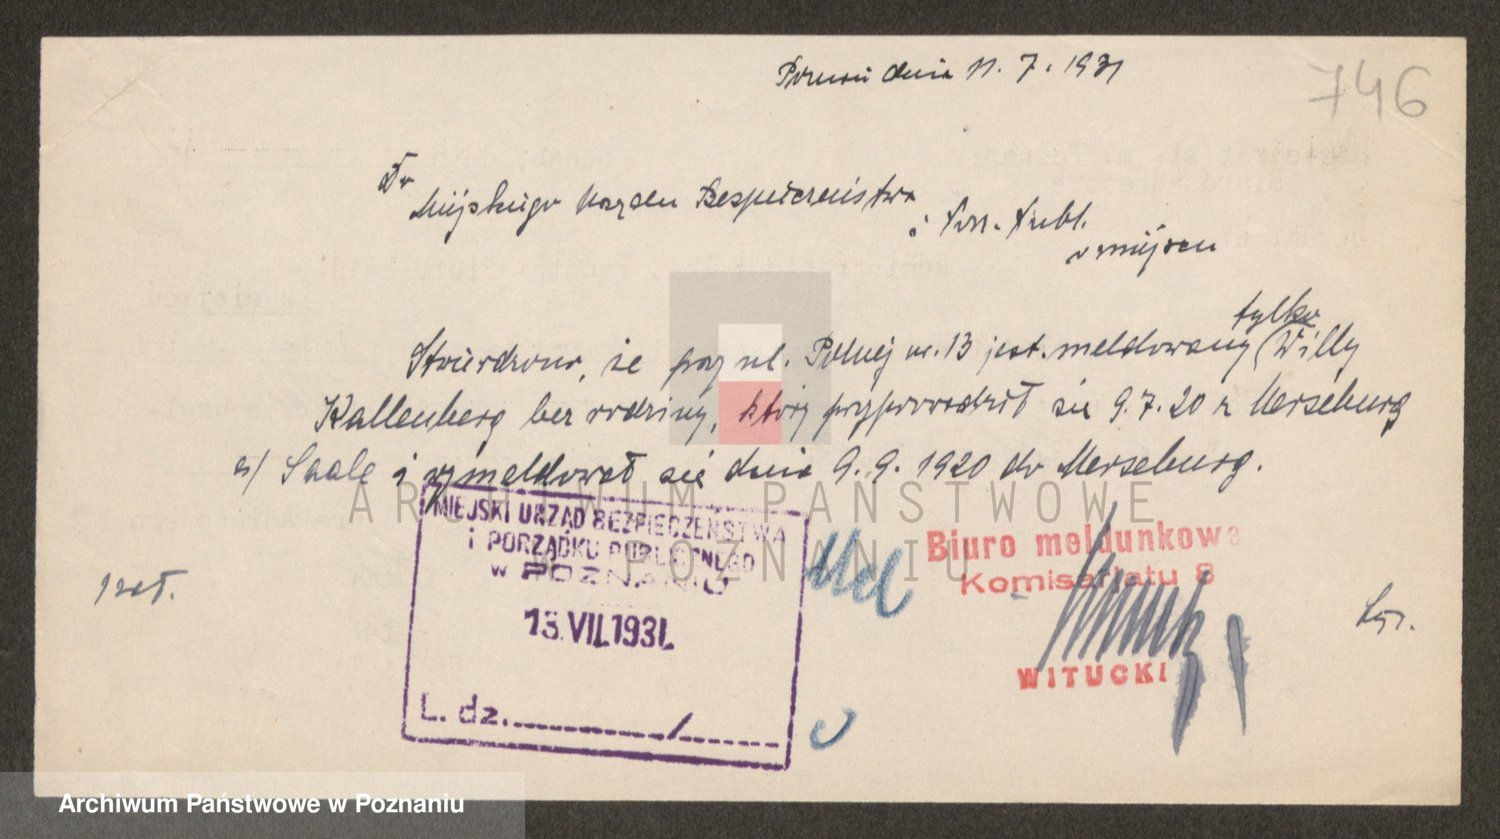 Poznań dnia 11. 7. 1931
746
Do
Miejskiego Urzędu Bezpieczeństwa
i Porz. Publ.
w miejscu
tylko
Stwierdzono, że przy ul. Polnej nr. 13 jest meldowany Willy
Kallenberg bez rodziny, który przyprowadził się 9.7.20 z Merseburg
a/ Saale i wymeldował się dnia 9.9.1920 do Merseburg.
MIEJSKI URZĄD BEZPIECZEŃSTWA
i PORZĄDKU PUBLICZNEGO
w POZNANIU
13. VII. 1931.
L. dz. /
Biuro meldunkowe
Komisarjatu 8
WITUCKI
ARCHIWUM PAŃSTWOWE
W POZNANIU
Archiwum Państwowe w Poznaniu